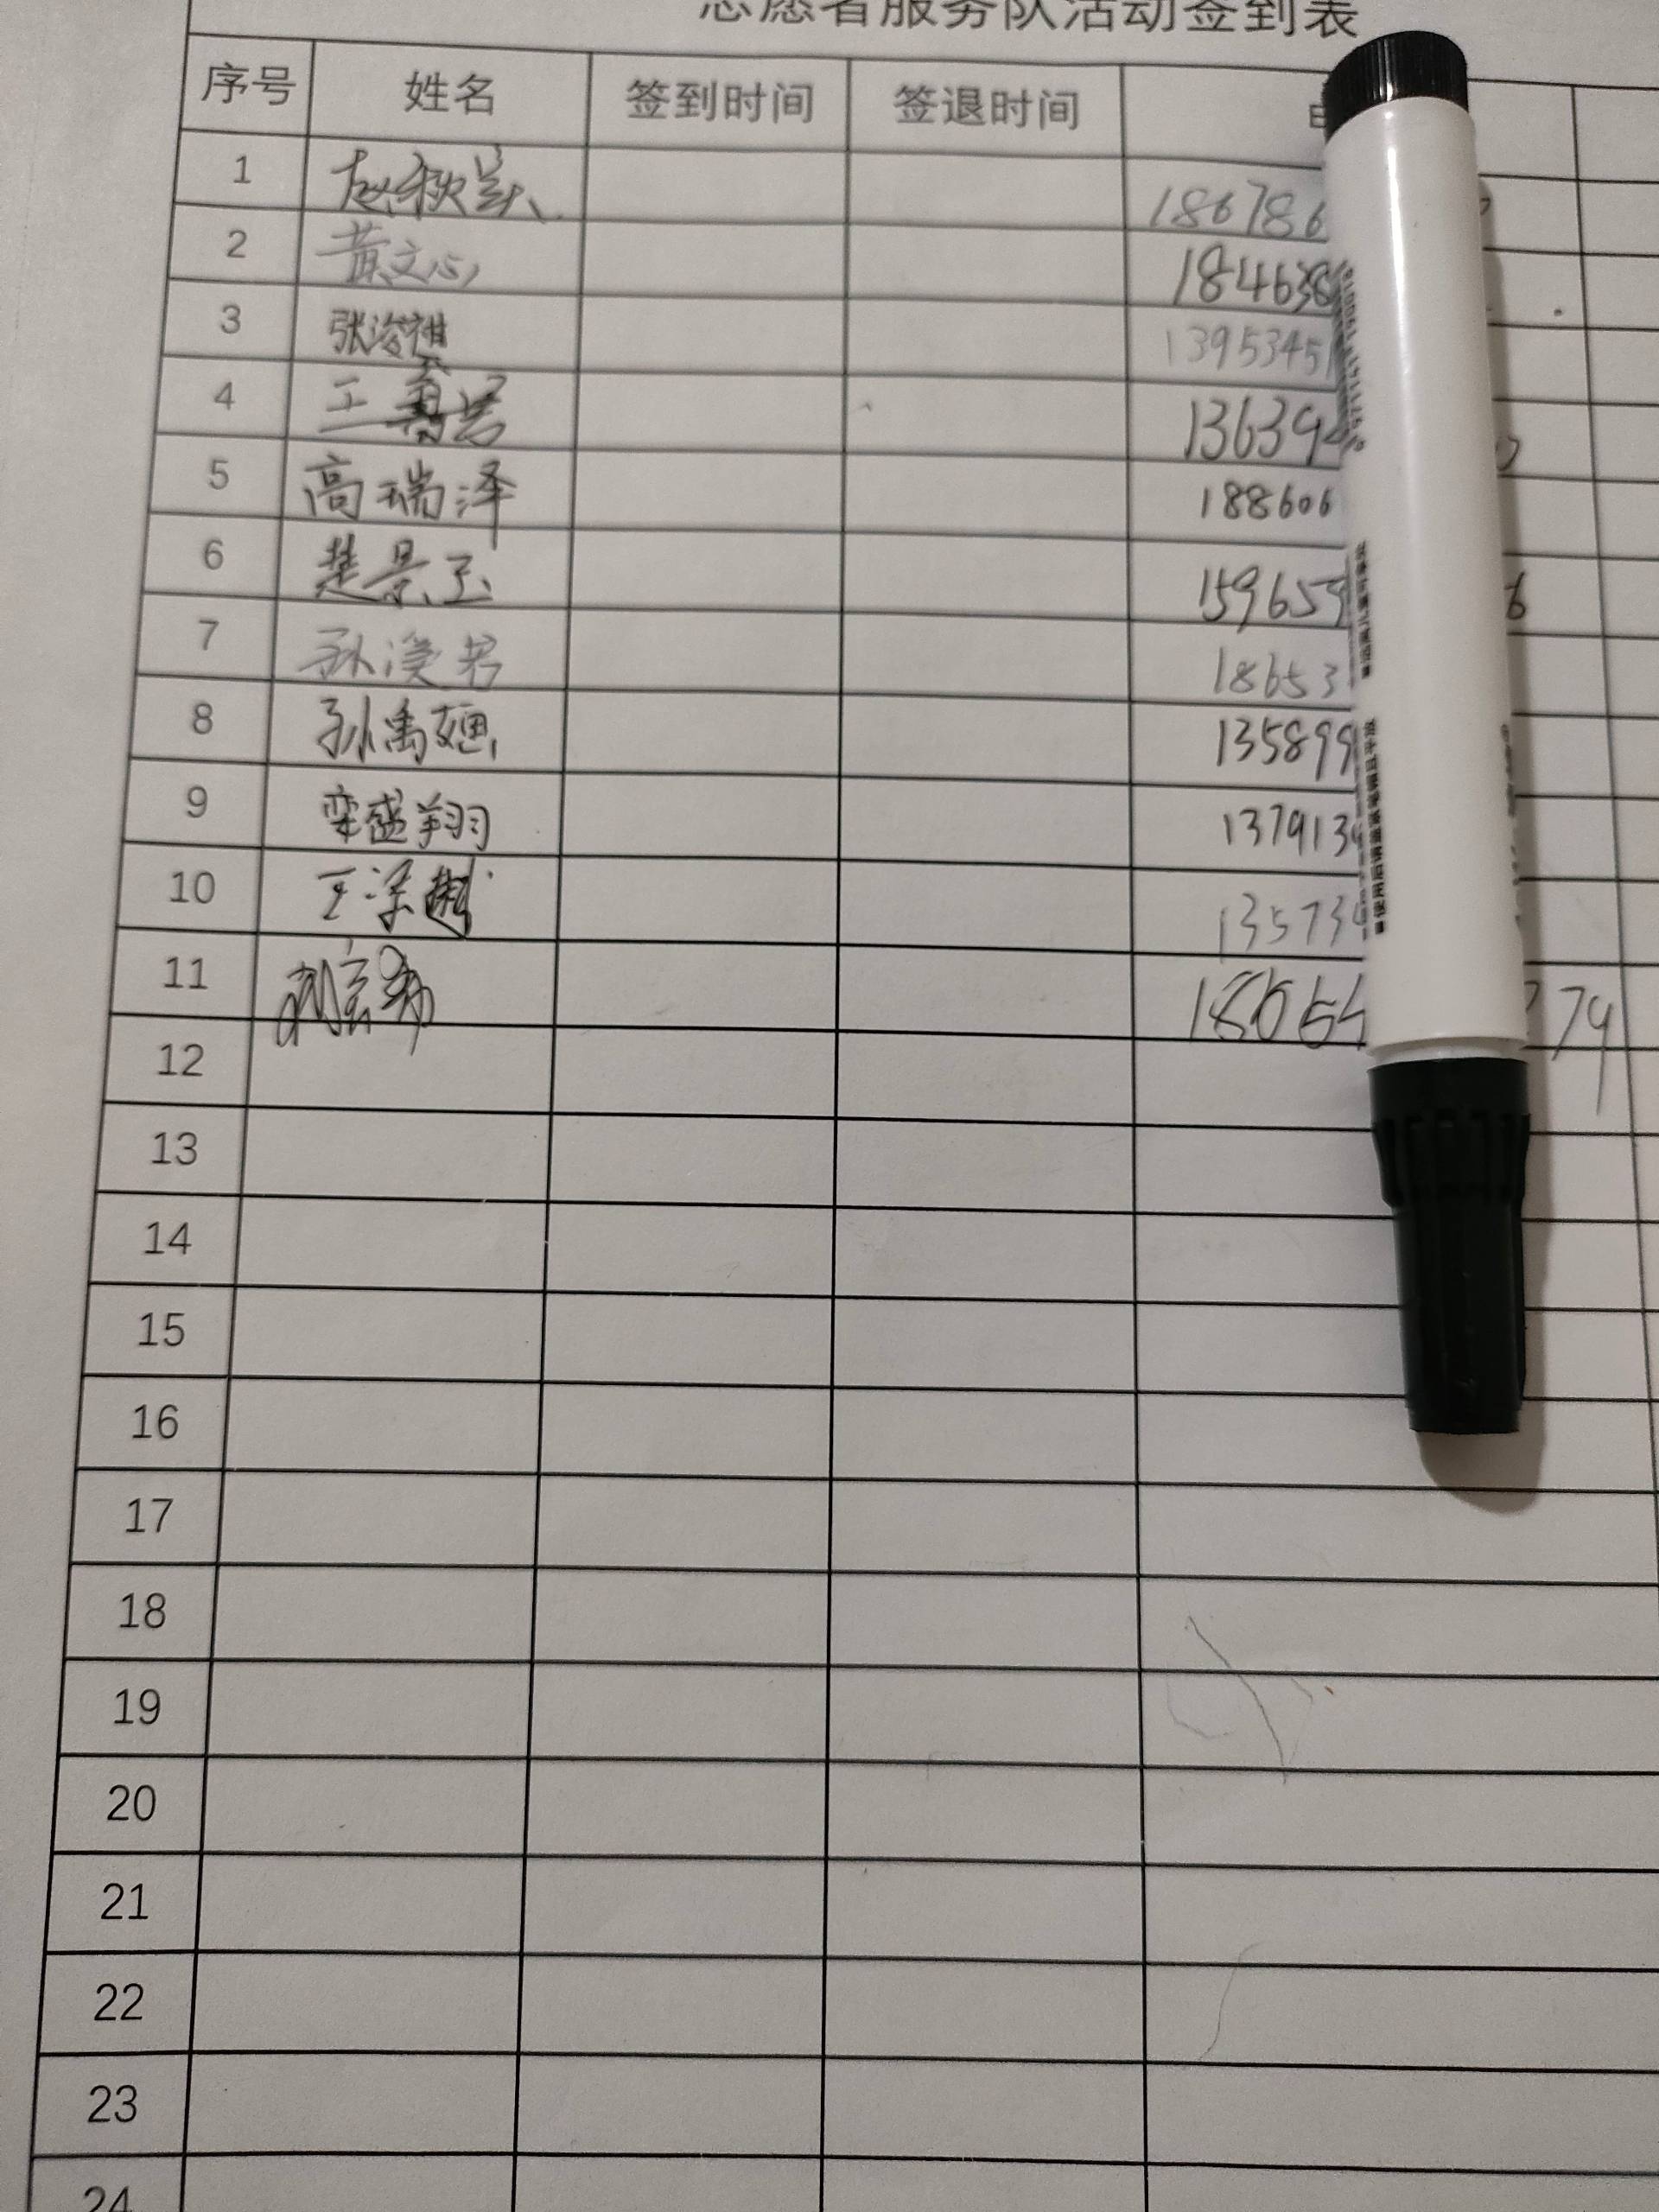 志愿者服务队活动签到表
序号 姓名 签到时间 签退时间
1 赵秋兰 186786
2 黄文心 184638
3 张浚祺 13953451
4 王 君 136394
5 高瑞泽 188606
6 楚景玉 159659 6
7 孙浚君 18653
8 孙禹 135899
9 栾盛翔 1379134
10 王泽 135734
11 18654 79
12
13
14
15
16
17
18
19
20
21
22
23
24